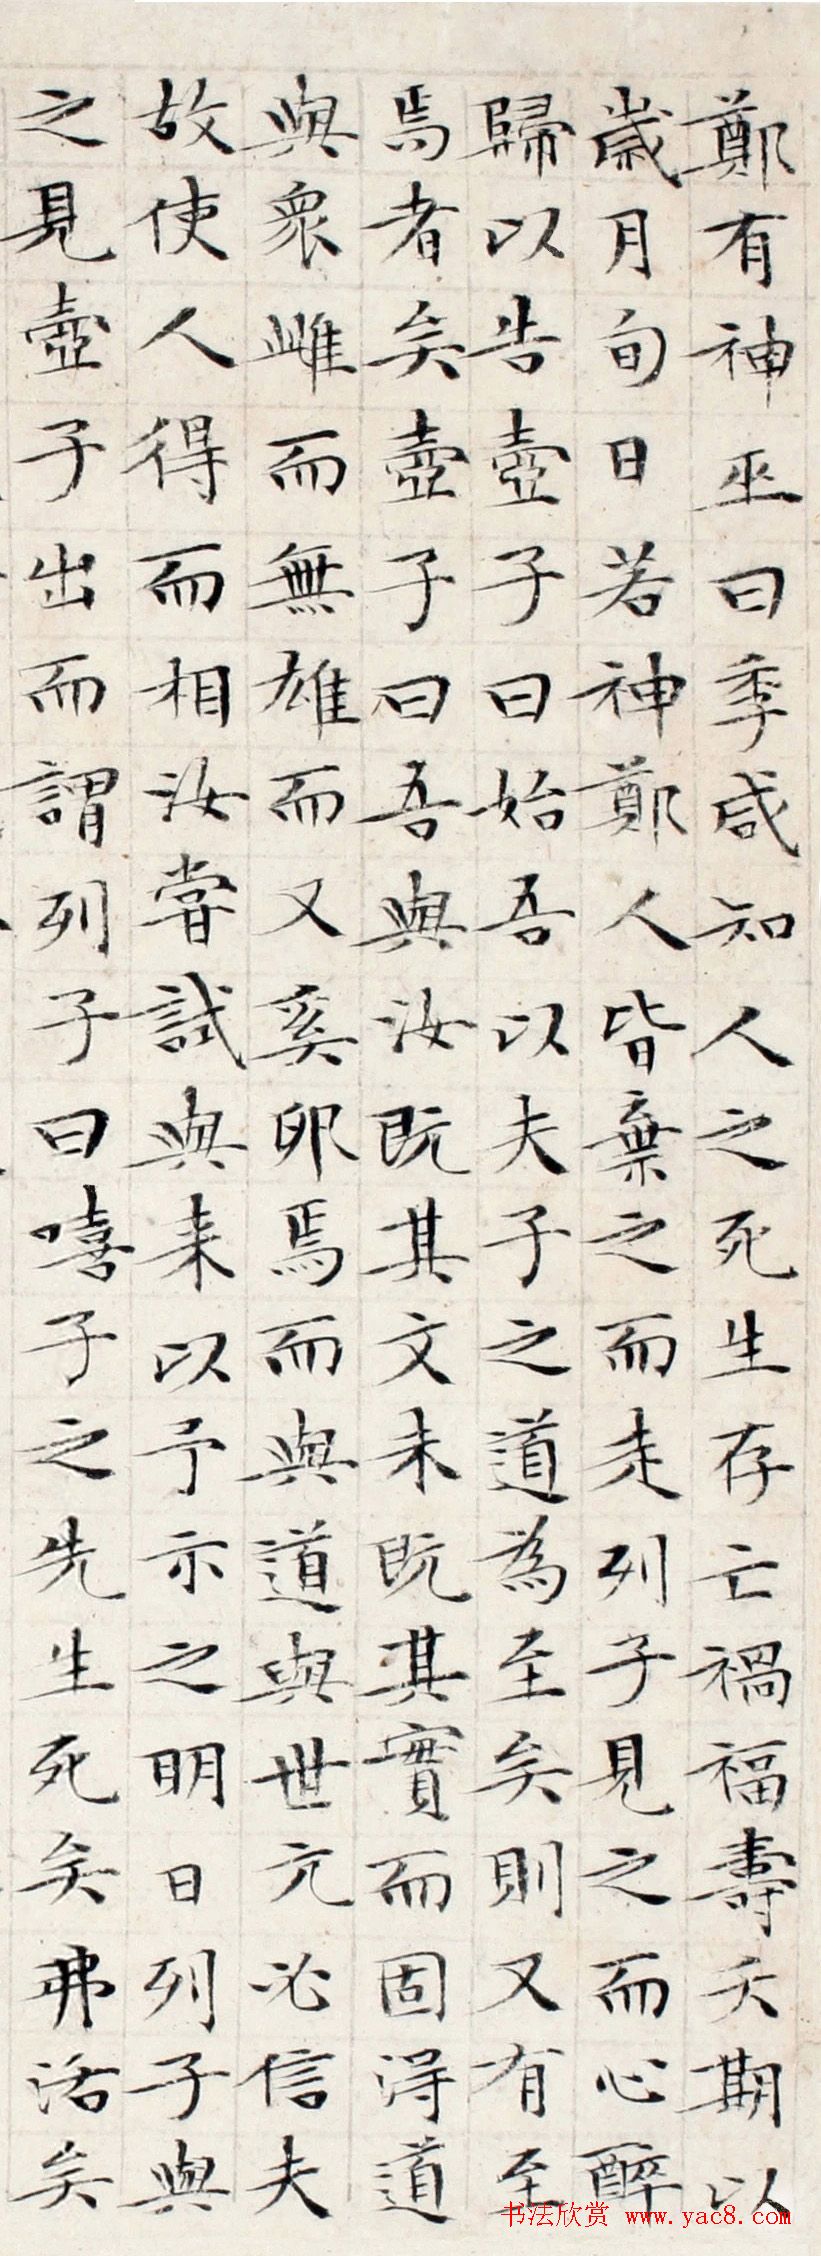 鄭有神巫曰季咸知人之死生存亡禍福壽夭期以
歲月旬日若神鄭人皆棄之而走列子見之而心醉
歸以告壺子曰始吾以夫子之道為至矣則又有至
焉者矣壺子曰吾與汝既其文未既其實而固得道
與衆雌而無雄而又奚卵焉而與道與世亢必信夫
故使人得而相汝嘗試與来以予示之明日列子與
之見壺子出而謂列子曰嘻子之先生死矣弗活矣
书法欣赏 www.yac8.com